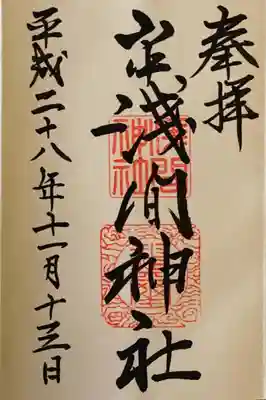 奉拝
淺間神社
平成二十八年十一月十三日